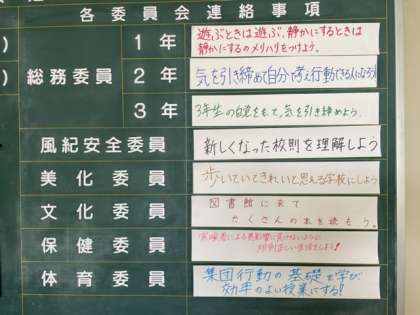 各委員会連絡事項
総務委員
1年
遊ぶときは遊ぶ、静かにするときは
静かにするのメリハリをつけよう。
2年
気を引き締めて自分で考え行動できる人になろう
3年
3年生の自覚をもって、気を引き締めよう。
風紀安全委員
新しくなった校則を理解しよう
美化委員
歩いていてきれいと思える学校にしよう
文化委員
図書館に来て
たくさんの本を読もう。
保健委員
体育委員
集団行動の基礎を学び
効率のよい授業にする!!